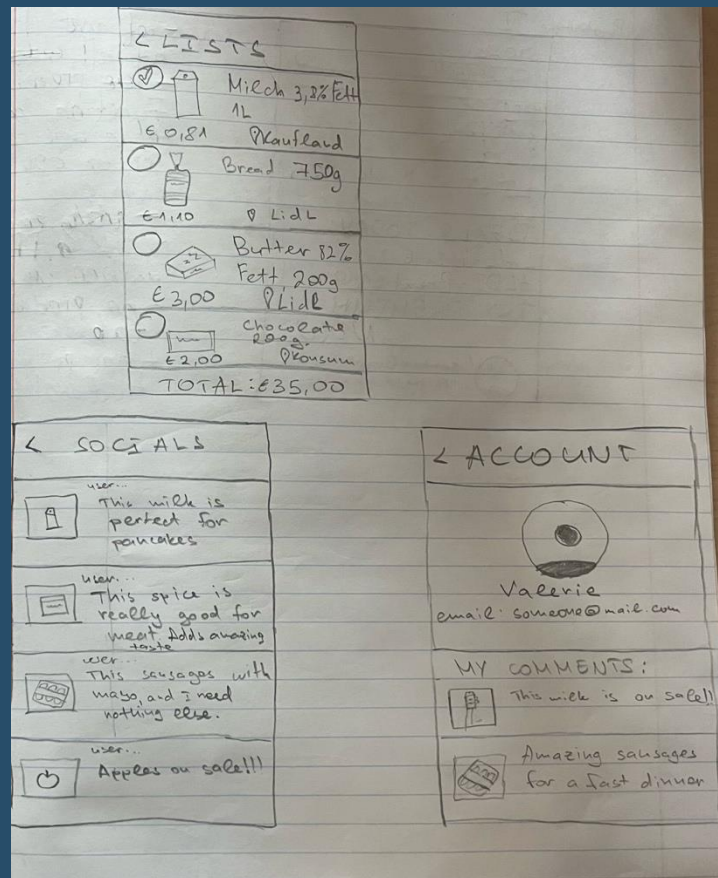 < LISTS
Milch 3,8% Fett
1L
€ 0,81 Kaufland
Bread 750g
€ 1,10 Lidl
Butter 82%
Fett, 200g
€ 3,00 Lidl
Chocolate
200g.
€ 2,00 Konsum
TOTAL: €35,00
< SOCIALS
user...
This milk is
perfect for
pancakes
user...
This spice is
really good for
meat. Adds amazing
taste
user...
This sausages with
mayo, and I need
nothing else.
user...
Apples on sale!!!
< ACCOUNT
Valerie
email: someone@mail.com
MY COMMENTS:
This milk is on sale!!
Amazing sausages
for a fast dinner